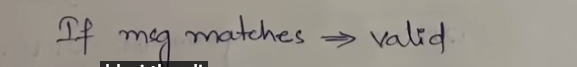 If msg matches ⇒ valid